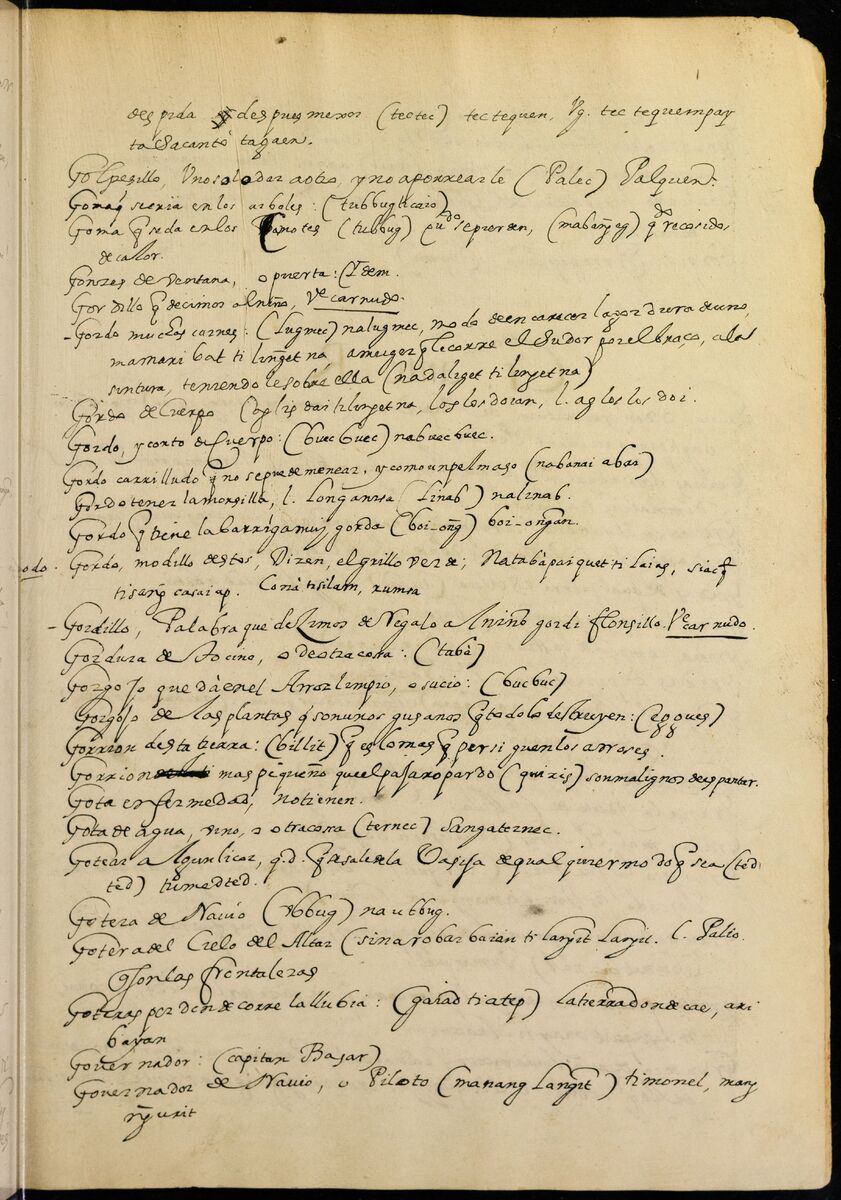 despida despues menor (tectec) tectequen, Vg. tectequempay
ta Sacantò tagaen.
Golpesillo, Uno solo dar aotro, y no aporrearle (Palec) Palquen.
Goma q̃ se cria en los arboles: (tubbug ticaio)
Goma q̃ se da en los Camotes (tubbug) qu.do se pierden, (mabañeg) q.do recosidos
de calor.
Gonzes de ventana, o puerta: (Ydem.
Gordillo q̃ decimos al niño, V.e carnudo.
- Gordo muchas carnes: (Lugmec) nalugmec, modo de encarecer la gordura de uno,
mamari bat ti linget na a muger q̃ le corre el Sudor por el braço, a la
sintura, teniendole sobre ella (nadaliget ti linget na)
Gordo de Cuerpo (oglis dai ti linget na, loslosdoian, l. agloslosdoi.
Gordo, y corto de Cuerpo: (buecbuec) nabuecbuec.
Gordo carrilludo q̃ no se puede menear, y como un pelmaso (nabanai abai)
Gordo tener la morsilla, l. Longanisa (Linab) nalinab.
Gordo q̃ tiene la barriga mui gorda (boi-oñg) boi-ongan.
odo. Gordo, modillo destos, Dizen, el grillo verde; Natabà pai quet ti Laias,
tisang casaiap.
- Gordillo, Palabra que dezimos de Regalo a Un niño gordi flonsillo. V.e carnudo.
Gordura de Tocino, o de otra cosa: (tabà)
Gorgojo que dà en el Arroz limpio, o sucio: (bucbuc)
Gorgojo de las plantas q̃ son unos gusanos q̃ todo lo destruyen: (egques)
Gorrion desta tierra: (billit) q̃ es lo mas q̃ persiguen los arroses.
Gorrion mas pequeño que el pajaro pardo (quiris) son malignos de espantar.
Gota enfermedad, no tienen.
Gota de agua, vino, o otra cosa (ternec) Sangaternec.
Gotear a Algun licor, q.d. q̃ se sale de la Vasija de qualquier modo q̃ sea (ted
ted) tumedted.
Gotera de Navio (Ubbug) na utbug.
Gotera del Cielo del Altar (sinarobarbaian ti langit Langit. l. Palio.
q̃ son las frontaleras
Goteras por donde corre la llubia: (gaiad ti atep) la tierra donde cae, ari
bayan
Governador: (capitan Basar)
Governador de Navio, o Piloto (manang Langit) timonel, mang
ngurit